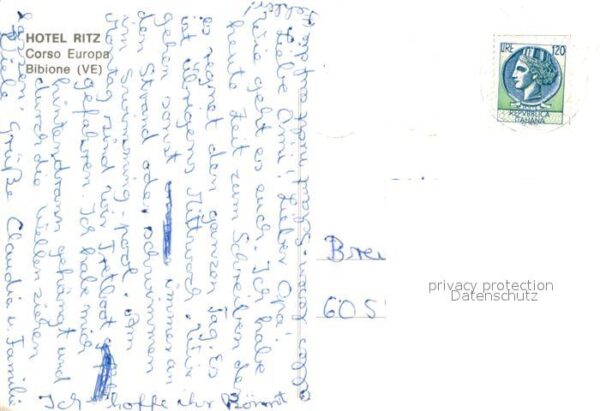 HOTEL RITZ
Corso Europa
Bibione (VE)
LIRE 120
REPVBBLICA
ITALIANA
Liebe Omi! Lieber Opa!
Wie geht es euch. Ich habe
heute Zeit zum Schreiben denn
es regnet den ganzen Tag. Es
ist übrigens Mittwoch. Wir
gehen sonst immer an
den Strand oder schwimmen
im Swimming-pool. Am
sind wir Tretboot
gefahren. Ich habe mich
hintendran gehängt und
durch die Wellen ziehen
lassen.
Viele Grüße Claudia u. Familie
Ich hoffe ihr könnt
Brei
605
privacy protection
Datenschutz